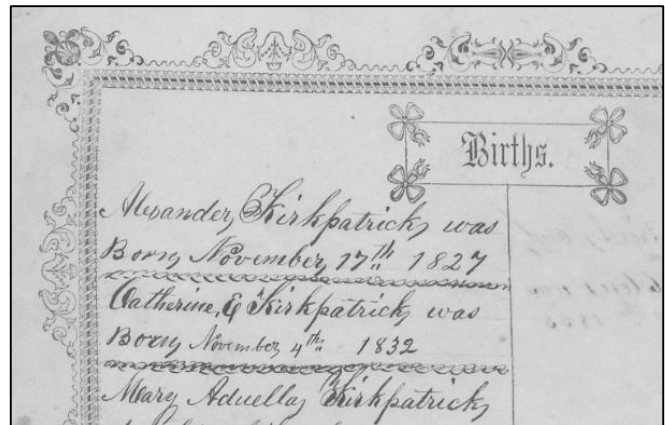 Births.
Alexander Kirkpatrick was
Born November 17th 1827
Catherine, E Kirkpatrick was
Born November 4th 1832
Mary Aduella Kirkpatrick